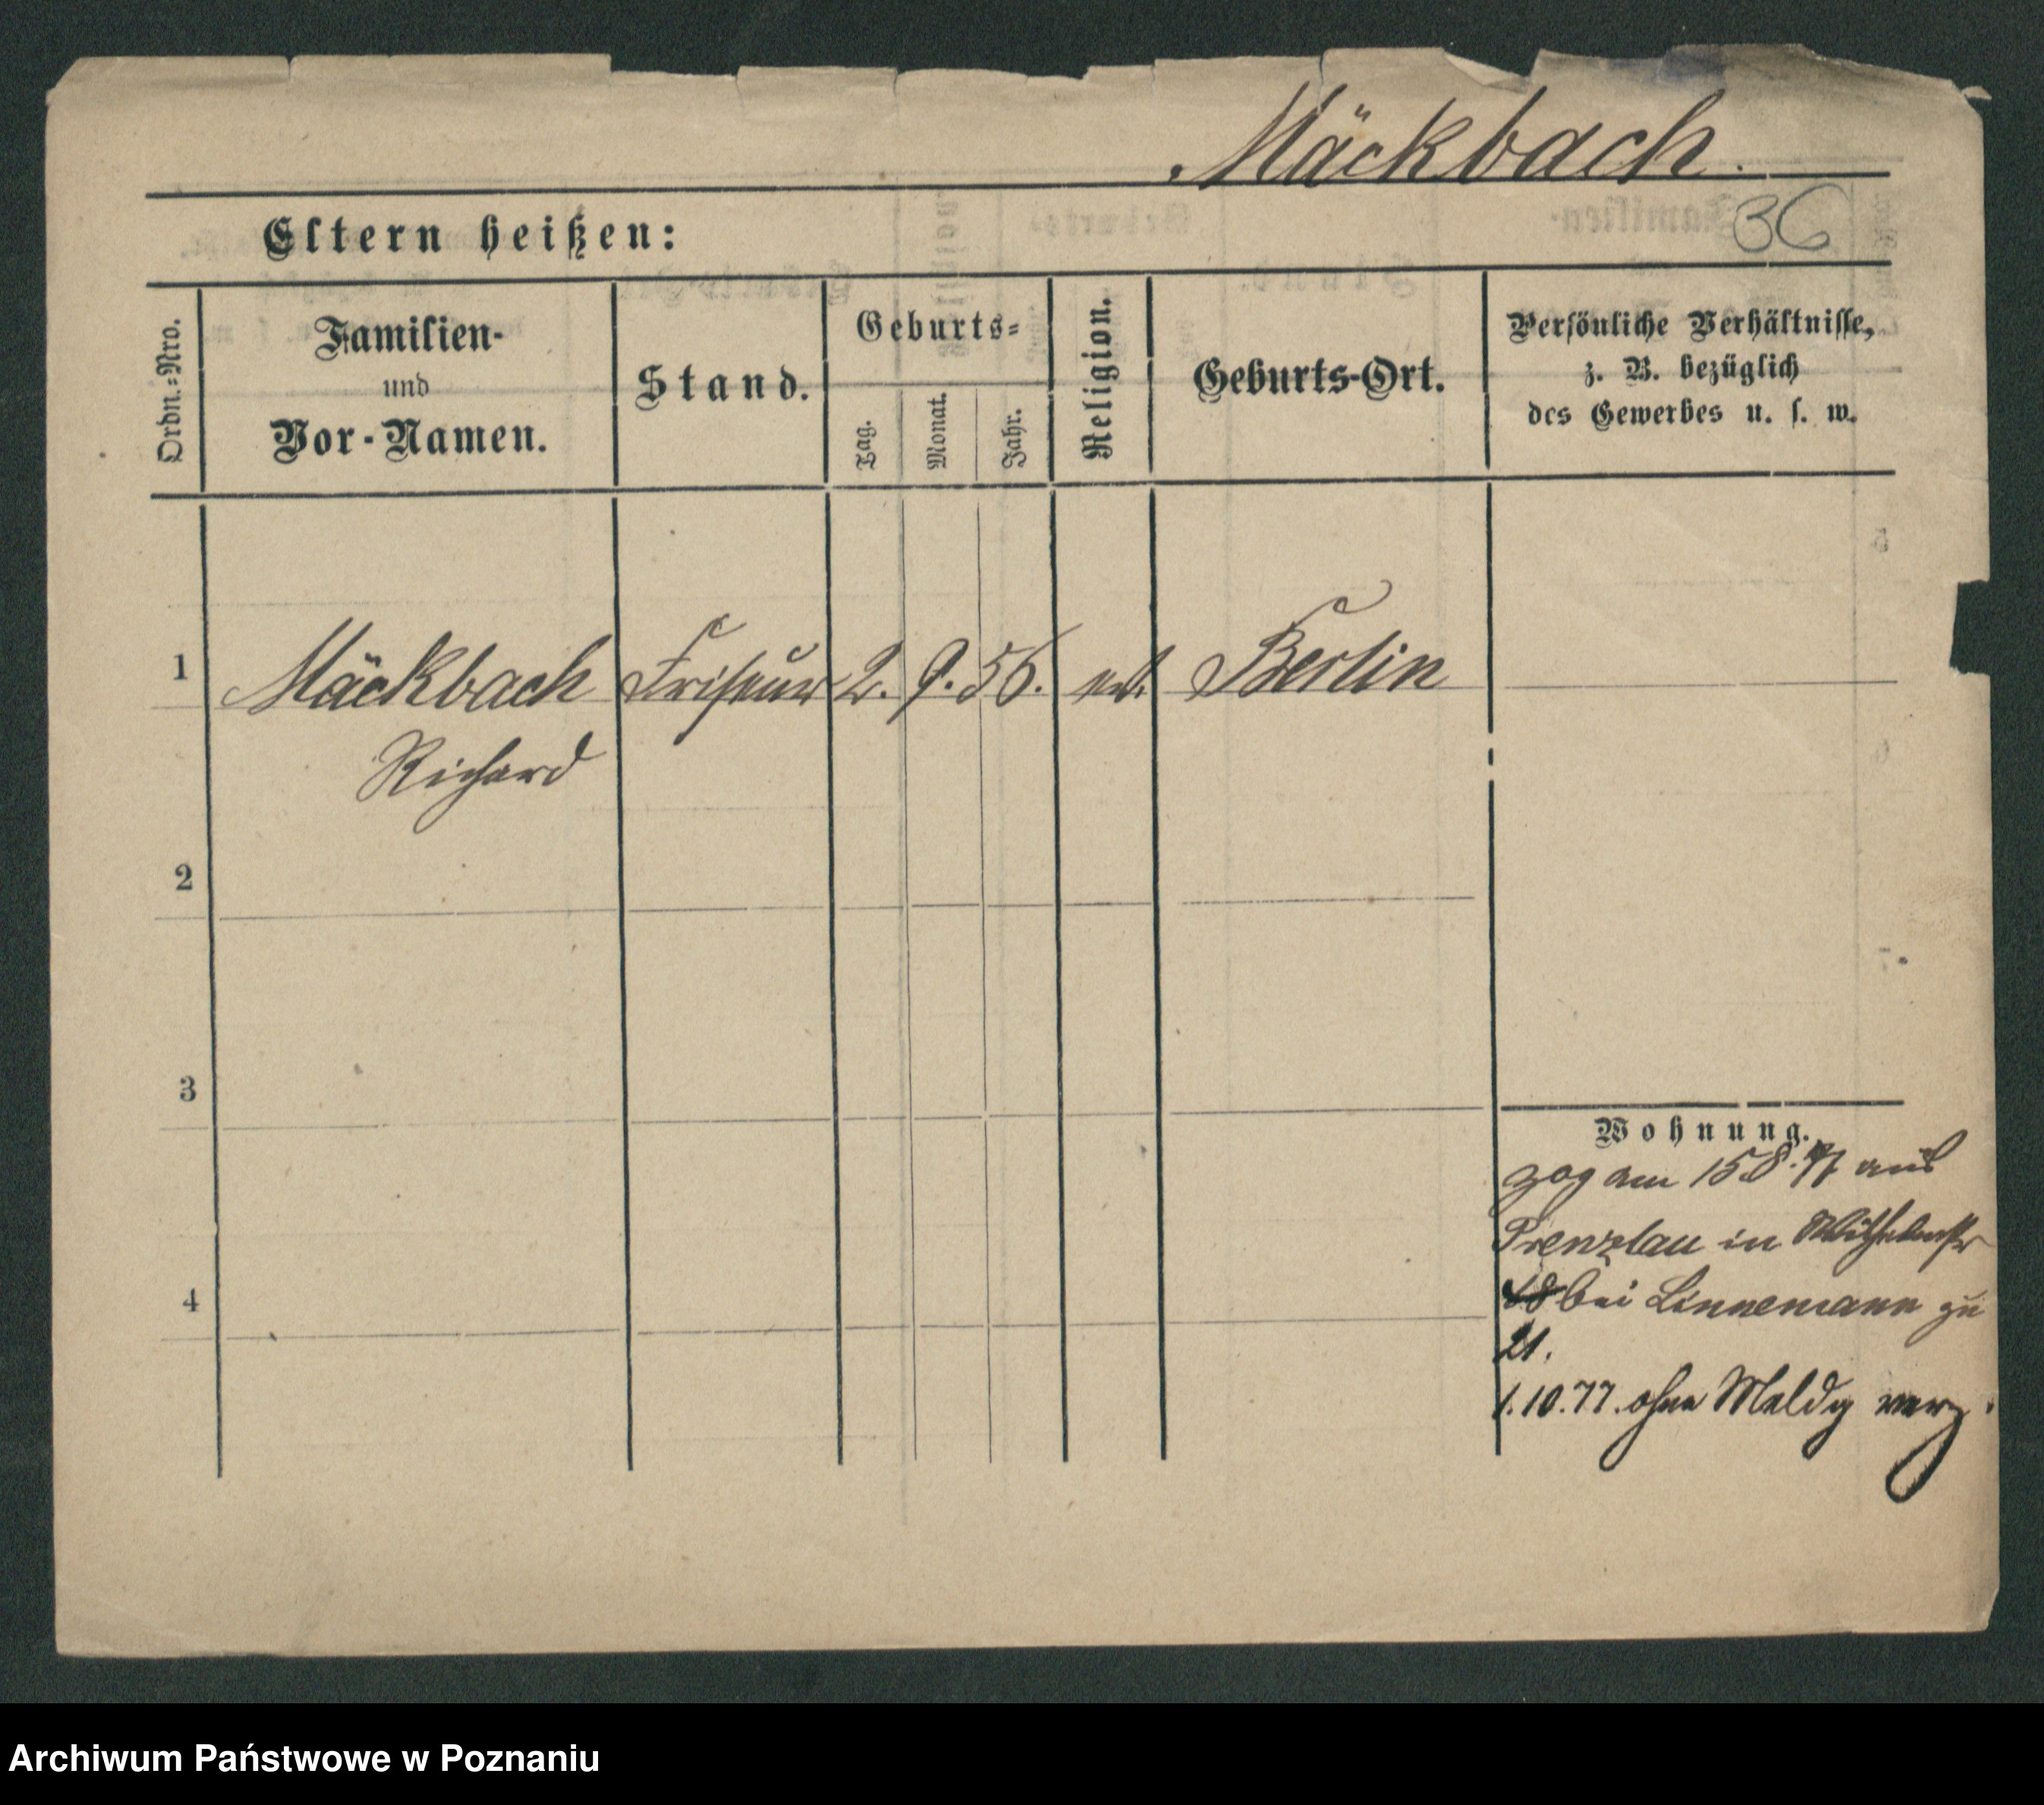 Mäckbach.
36
Eltern heißen:
Ordn.=Nro.
Familien-
und
Vor-Namen.
Stand.
Geburts=
Tag.
Monat.
Jahr.
Religion.
Geburts-Ort.
Persönliche Verhältnisse,
z. B. bezüglich
des Gewerbes u. s. w.
1 Mäckbach Friseur 2. 9. 56. Berlin
Richard
2
3
4
Wohnung.
zog am 15 8. 77 aus
Prenzlau in Wilhelmstr
18 bei Linnemann zu
21.
1.10.77. ohne Meldg verz.
Archiwum Państwowe w Poznaniu